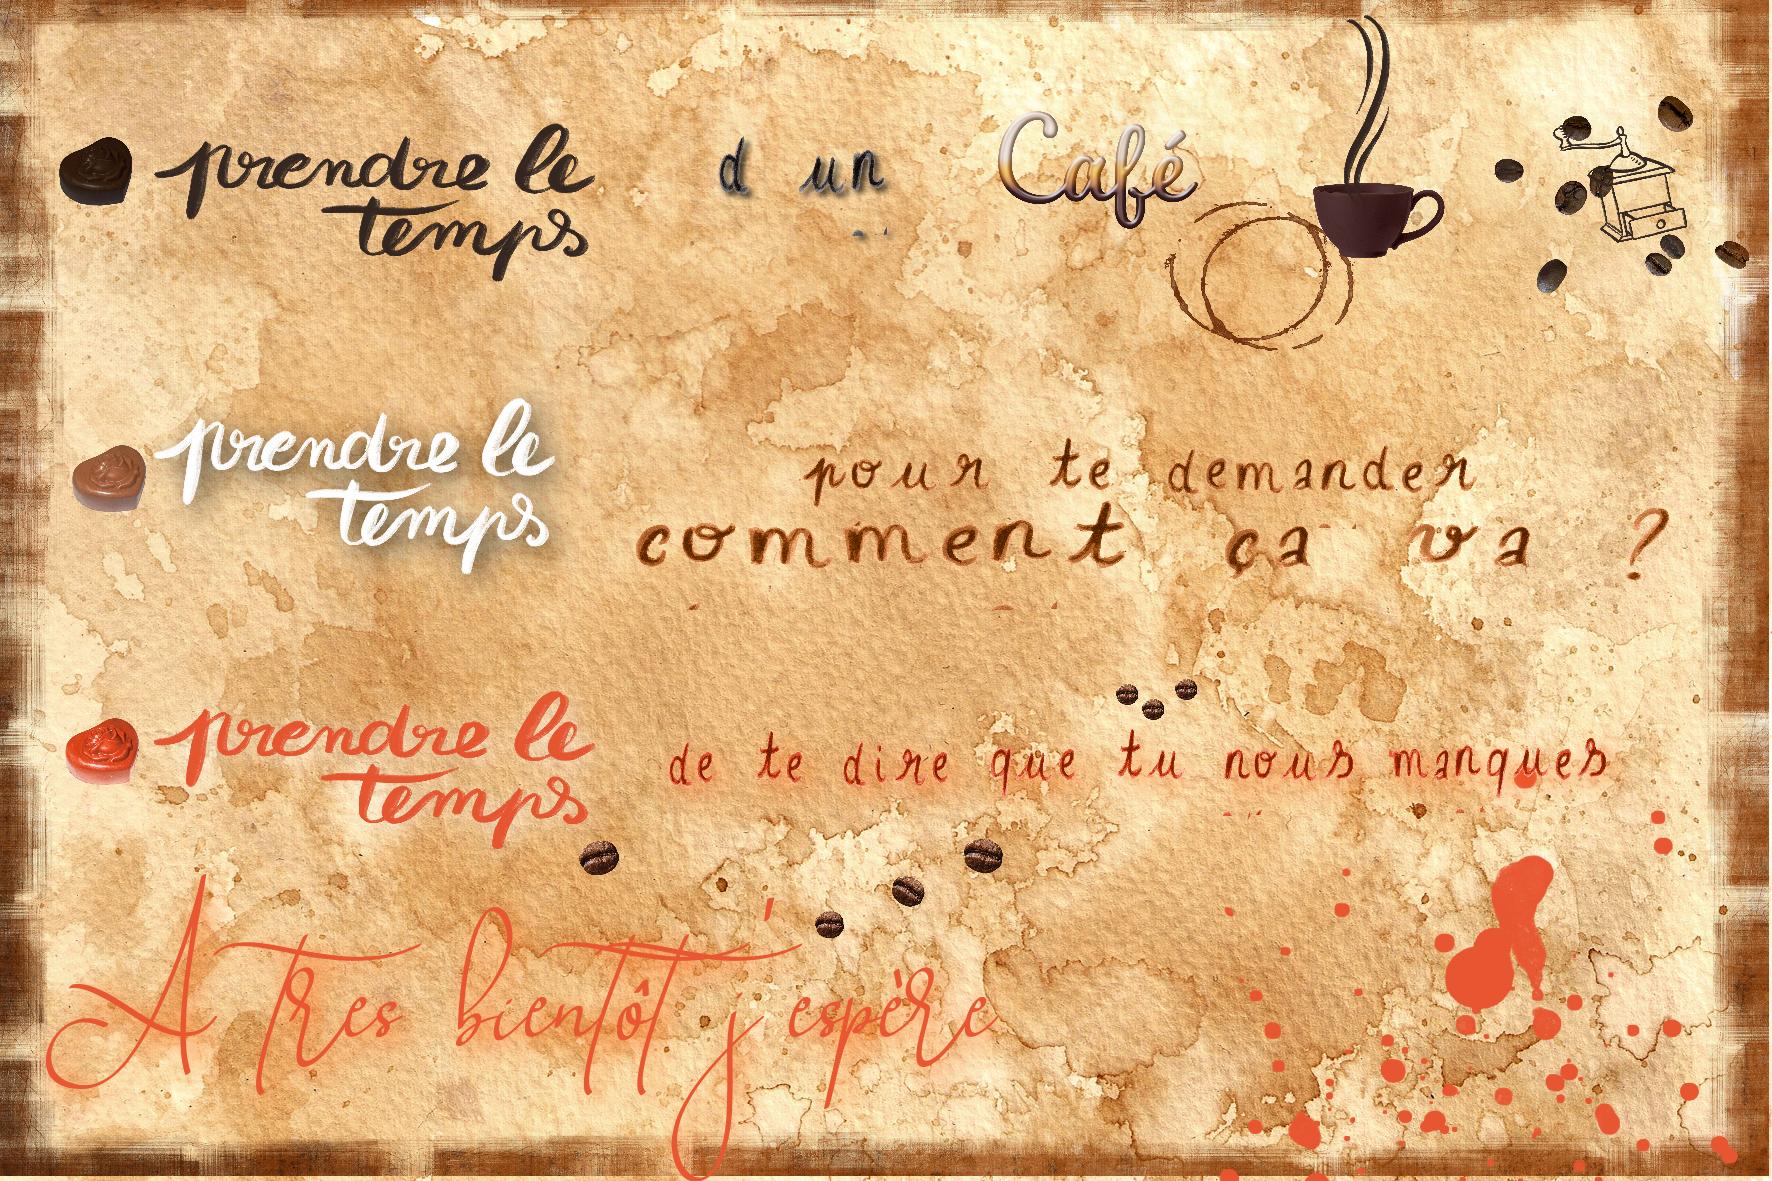 prendre le
temps
d un Café
prendre le
temps
pour te demander
comment ça va ?
prendre le
temps
de te dire que tu nous manques
A tres bientôt j'espère